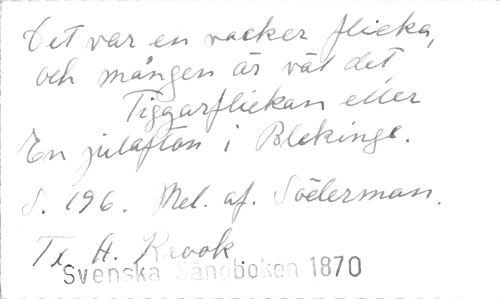 Det var en vacker flicka,
och mången är väl det,
Tiggarflickan eller
En julafton i Blekinge.
S. 196. Mel. af. Söderman.
Tr H. Krook.
Svenska Sångboken 1870